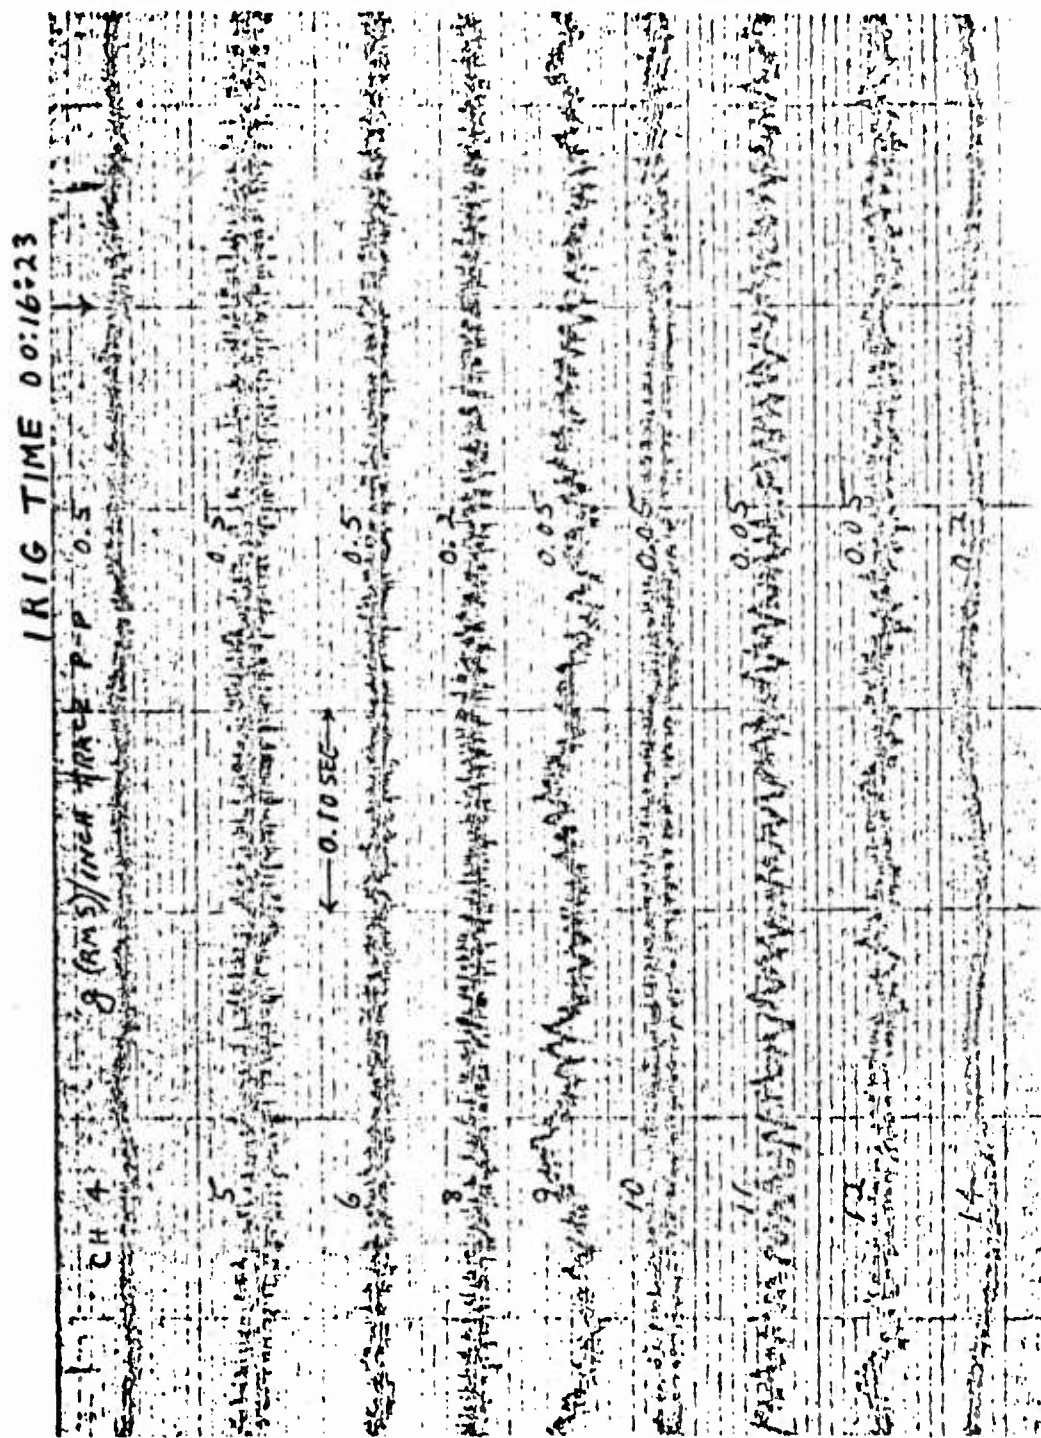 IRIG TIME 00:16:23
g (RMS)/INCH TRACE P-P 0.5
CH 4
5 0.5
← 0.10 SEC →
6 0.5
8 0.2
9 0.05
10 0.05
11 0.05
0.05
14 0.2